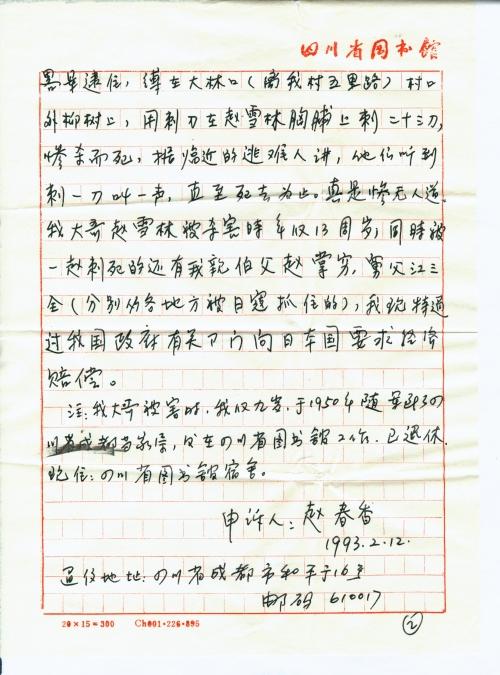 四川省图书馆
寇逮住，绑在大林口（离我村五里路）村口
外柳树上，用刺刀在赵雪林胸脯上刺二十三刀，
惨杀而死，据临近的逃难人讲，他们听到
刺一刀叫一声，直至死去为止。真是惨无人道。
我大哥赵雪林被杀害时年仅13周岁，同时被
一起刺死的还有我亲伯父赵掌穷，舅父江三
全（分别从各地方被日寇抓住的），我现特通
过我国政府有关部门向日本国要求经济
赔偿。
注：我大哥被害时，我仅九岁，于1950年随军到四
川省成都市，在四川省图书馆工作，已退休.
现住：四川省图书馆宿舍。
申诉人：赵春香
1993.2.12.
通信地址：四川省成都市和平街16号
邮码 610017
20×15=300 Ch001·226·895
②